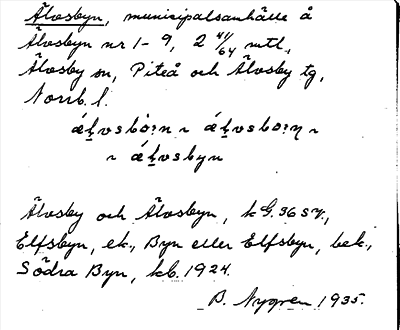 Älvsbyn, municipalsamhälle å
Älvsbyn nr 1-9, 2 41/64 mtl,
Älvsby sn, Piteå och Älvsby tg,
Norrb. l.
ǽḷvsbò:n ~ ǽḷvsbo:n ~
~ ǽḷvsbyn
Älvsby och Älvsbyn, kG. 36 SV,
Elfsbyn, ek., Byn eller Elfsbyn, bek.,
Södra Byn, kb. 1924.
B. Nygren 1935.